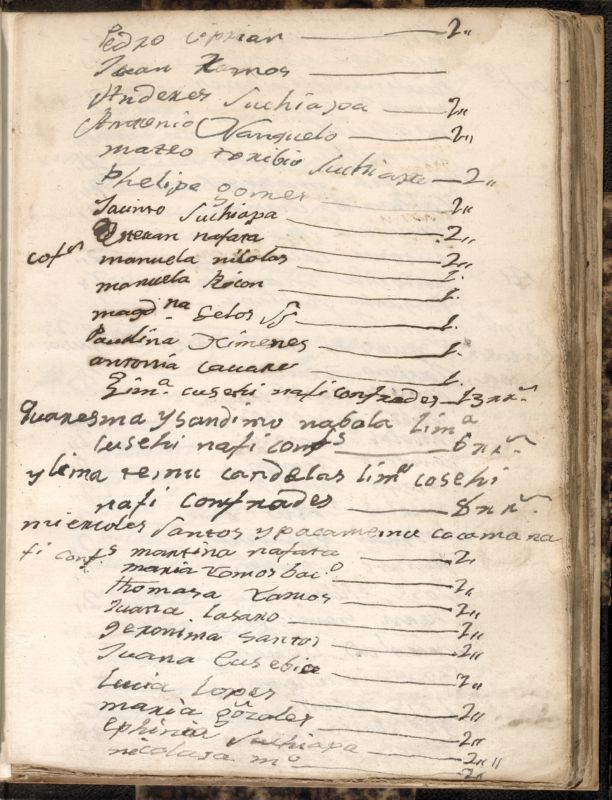 Pedro ciprian — 2"
Juan Ramos —
Anderes Suchiapa — 2"
Antonio Nanguelo — 2"
mateo toribio Suchiapa — 2"
Phelipe gomes
Jacinto Suchiapa — 2"
Esteuan nafata — 2"
cofs manuela nicolas — 2"
manuela Ricon — 1.
magdna — 1.
Paulina Ximenes — 1.
antonia — 1.
limª cusehi nafi confrades — 13 rrs
quaresma y sandimo nabala limª
cusehi nafi confs — 6 rrs
y candelas limª cosehi
nafi confrades — 8 rrs
miercoles Santos y
fi confs martina nafata — 2,
maria Ramos — 2"
thomasa Ramos — 2"
Juana Losano — 2"
geronima Santos — 2"
Juana Eusebia — 2"
Lucia Lopes
maria gozales — 2"
Ephinia Suchiapa — 2"
nicolasa mo — 2"